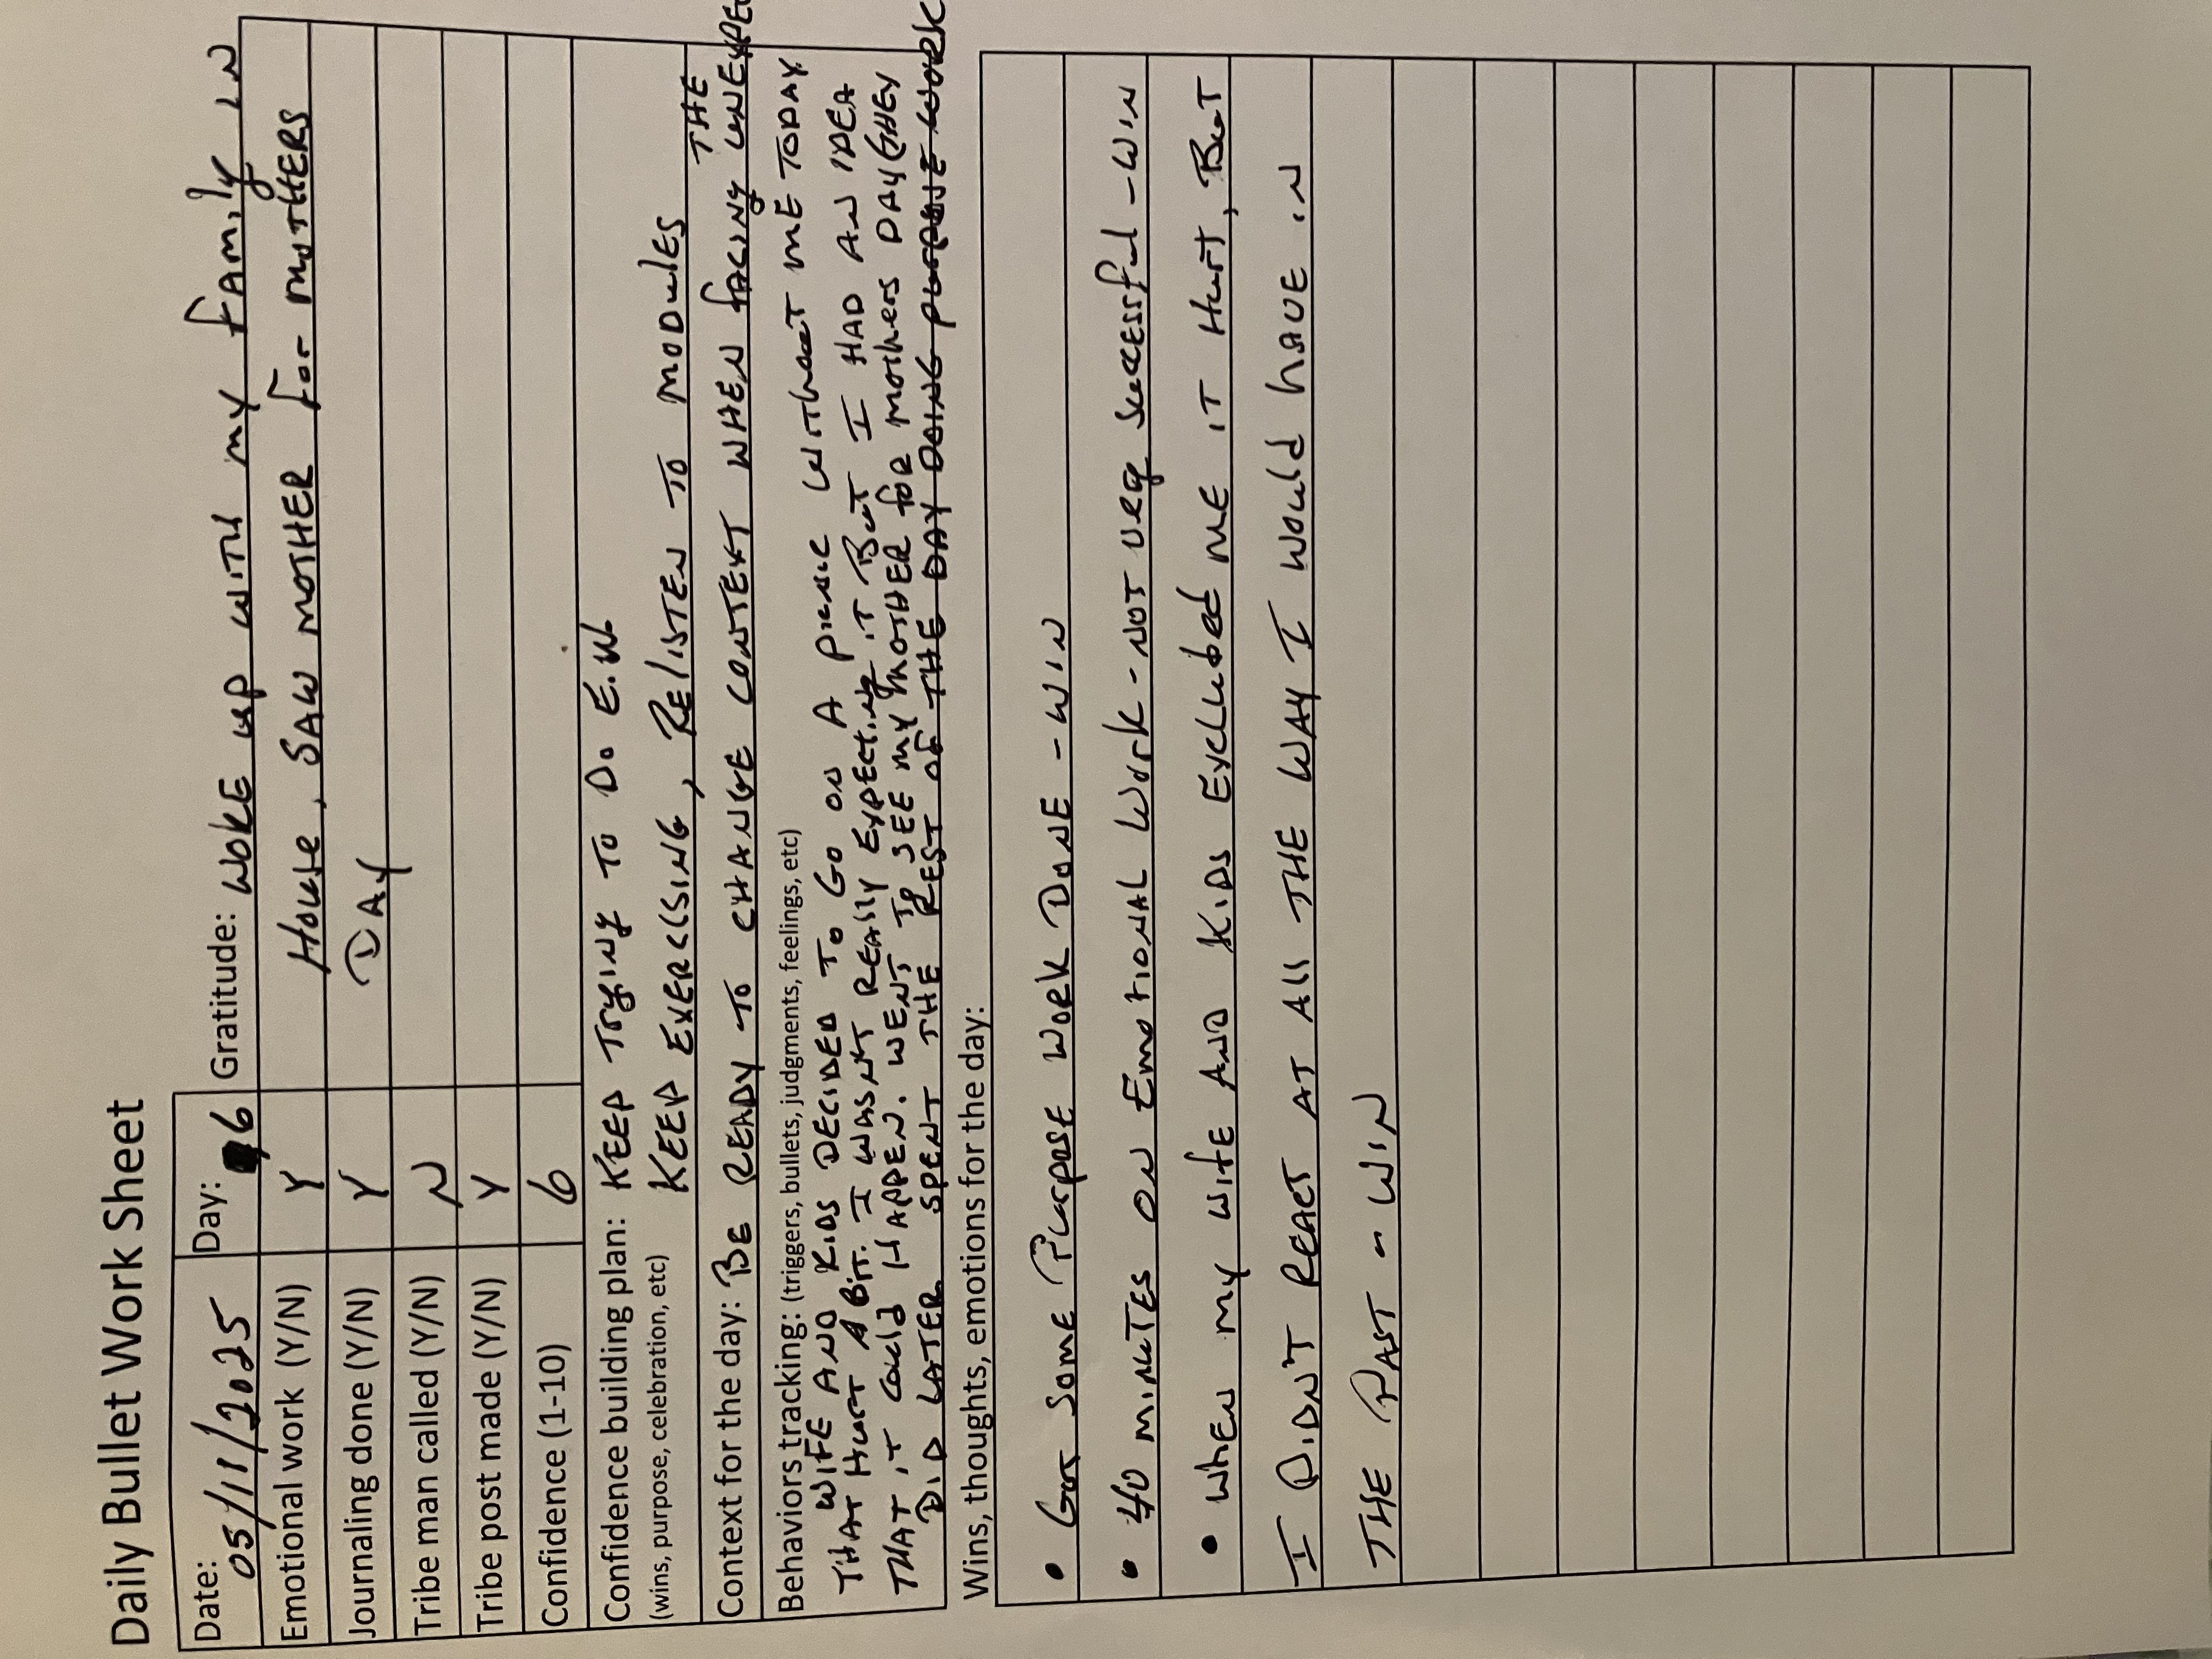 Daily Bullet Work Sheet
Date: 05/11/2025 Day: 6 Gratitude: WOKE up WITH my FAMily IN
Emotional work (Y/N) Y House, SAW MOTHER For MOTHERS
Journaling done (Y/N) Y DAY
Tribe man called (Y/N) N
Tribe post made (Y/N) Y
Confidence (1-10) 6
Confidence building plan: KEEP TRying TO D. E.W.
(wins, purpose, celebration, etc) KEEP EXERCISING, RElISTEN TO MODulES
THE
Context for the day: BE READY TO CHANGE CONTEXT WHEN fACiNg UNEXPEC
Behaviors tracking: (triggers, bullets, judgments, feelings, etc)
WIFE AND KIDS DECIDED TO GO ON A picnic WITHOUT ME TODAY.
THAT HURT A BIT. I WASNT REAlly EXPECTiNg iT BuT I HAD AN IDEA
THAT iT Could HAPPEN. WENT TO SEE MY MOTHER foR MothERS DAY (THEY
DID LATER SPENT THE REST OF THE DAY DOING PURPOSE WORK
Wins, thoughts, emotions for the day:
• GOT SOME PURPOSE WORK DONE - WIN
• 40 MINUTES ON EMOTIONAL WORK - NOT VERY SUCCESSful - WIN
• WhEN my WifE AND KiDS EXCLUDED ME iT HURT, BuT
I DIDN'T REACT AT All THE WAY I Would hAVE iN
THE PAST - WIN